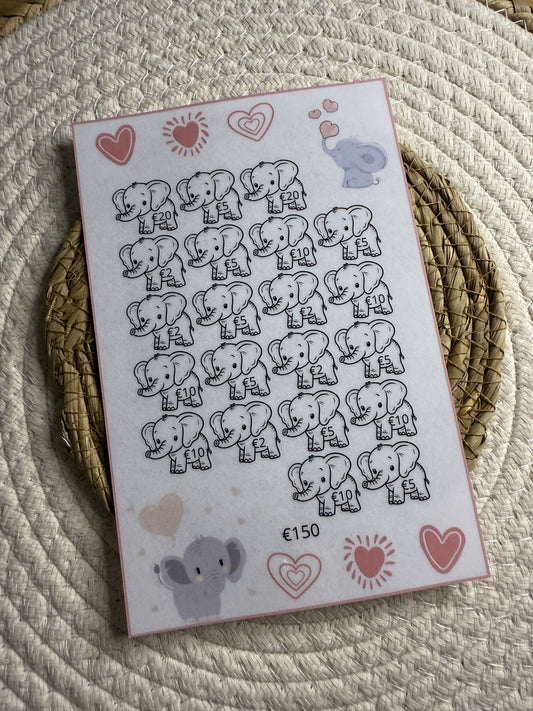 €20 €5 €20
€2 €5 €10 €5
€2 €5 €2 €10
€10 €5 €2 €5
€10 €2 €5 €10
€10 €5
€150